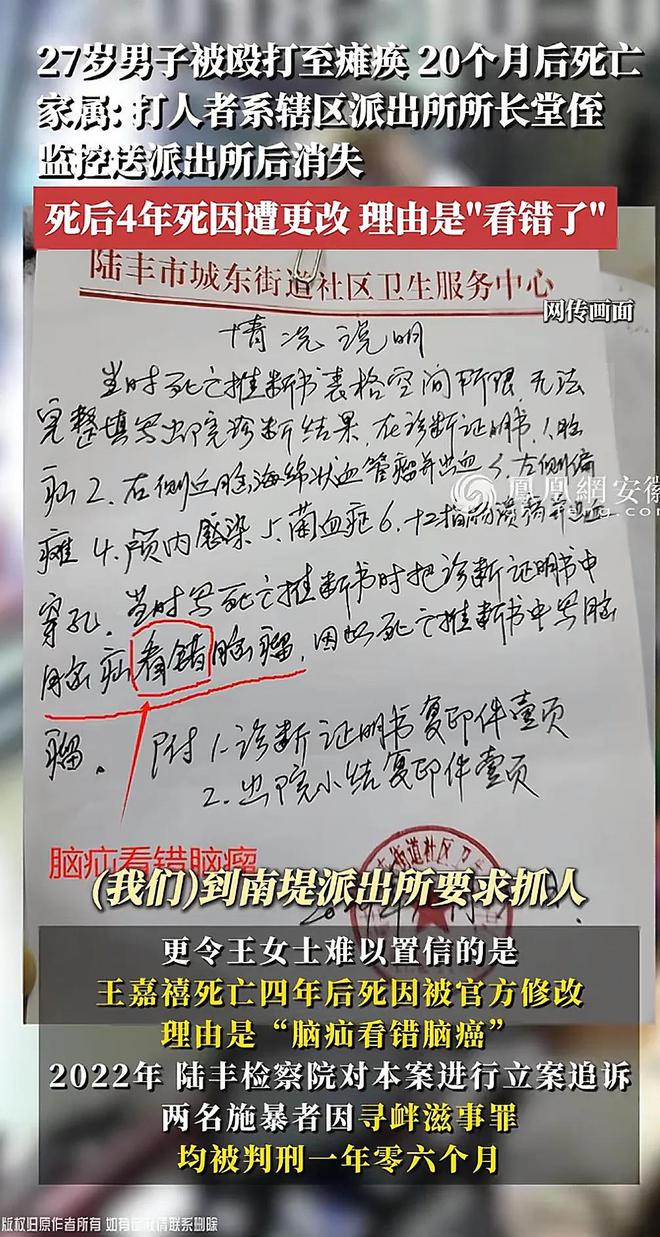 27岁男子被殴打至瘫痪 20个月后死亡
家属: 打人者系辖区派出所所长堂侄
监控送派出所后消失
死后4年死因遭更改 理由是"看错了"
陆丰市城东街道社区卫生服务中心
网传画面
情况说明
当时死亡推断书表格空间所限,无法
完整填写出院诊断结果,在诊断证明书,1.脑
疝2.右侧丘脑海绵状血管瘤并出血3.左侧偏
瘫4.颅内感染5.菌血症6.十二指肠溃疡并
穿孔。当时写死亡推断书时把诊断证明书中
脑疝看错脑瘤,因此死亡推断书中写脑
瘤。附1.诊断证明书复印件壹页
2.出院小结复印件壹页
凤凰網安徽
脑疝看错脑瘤
街道社区卫
(我们)到南堤派出所要求抓人
更令王女士难以置信的是
王嘉禧死亡四年后死因被官方修改
理由是“脑疝看错脑癌”
2022年 陆丰检察院对本案进行立案追诉
两名施暴者因寻衅滋事罪
均被判刑一年零六个月
版权归原作者所有 如有侵权请联系删除